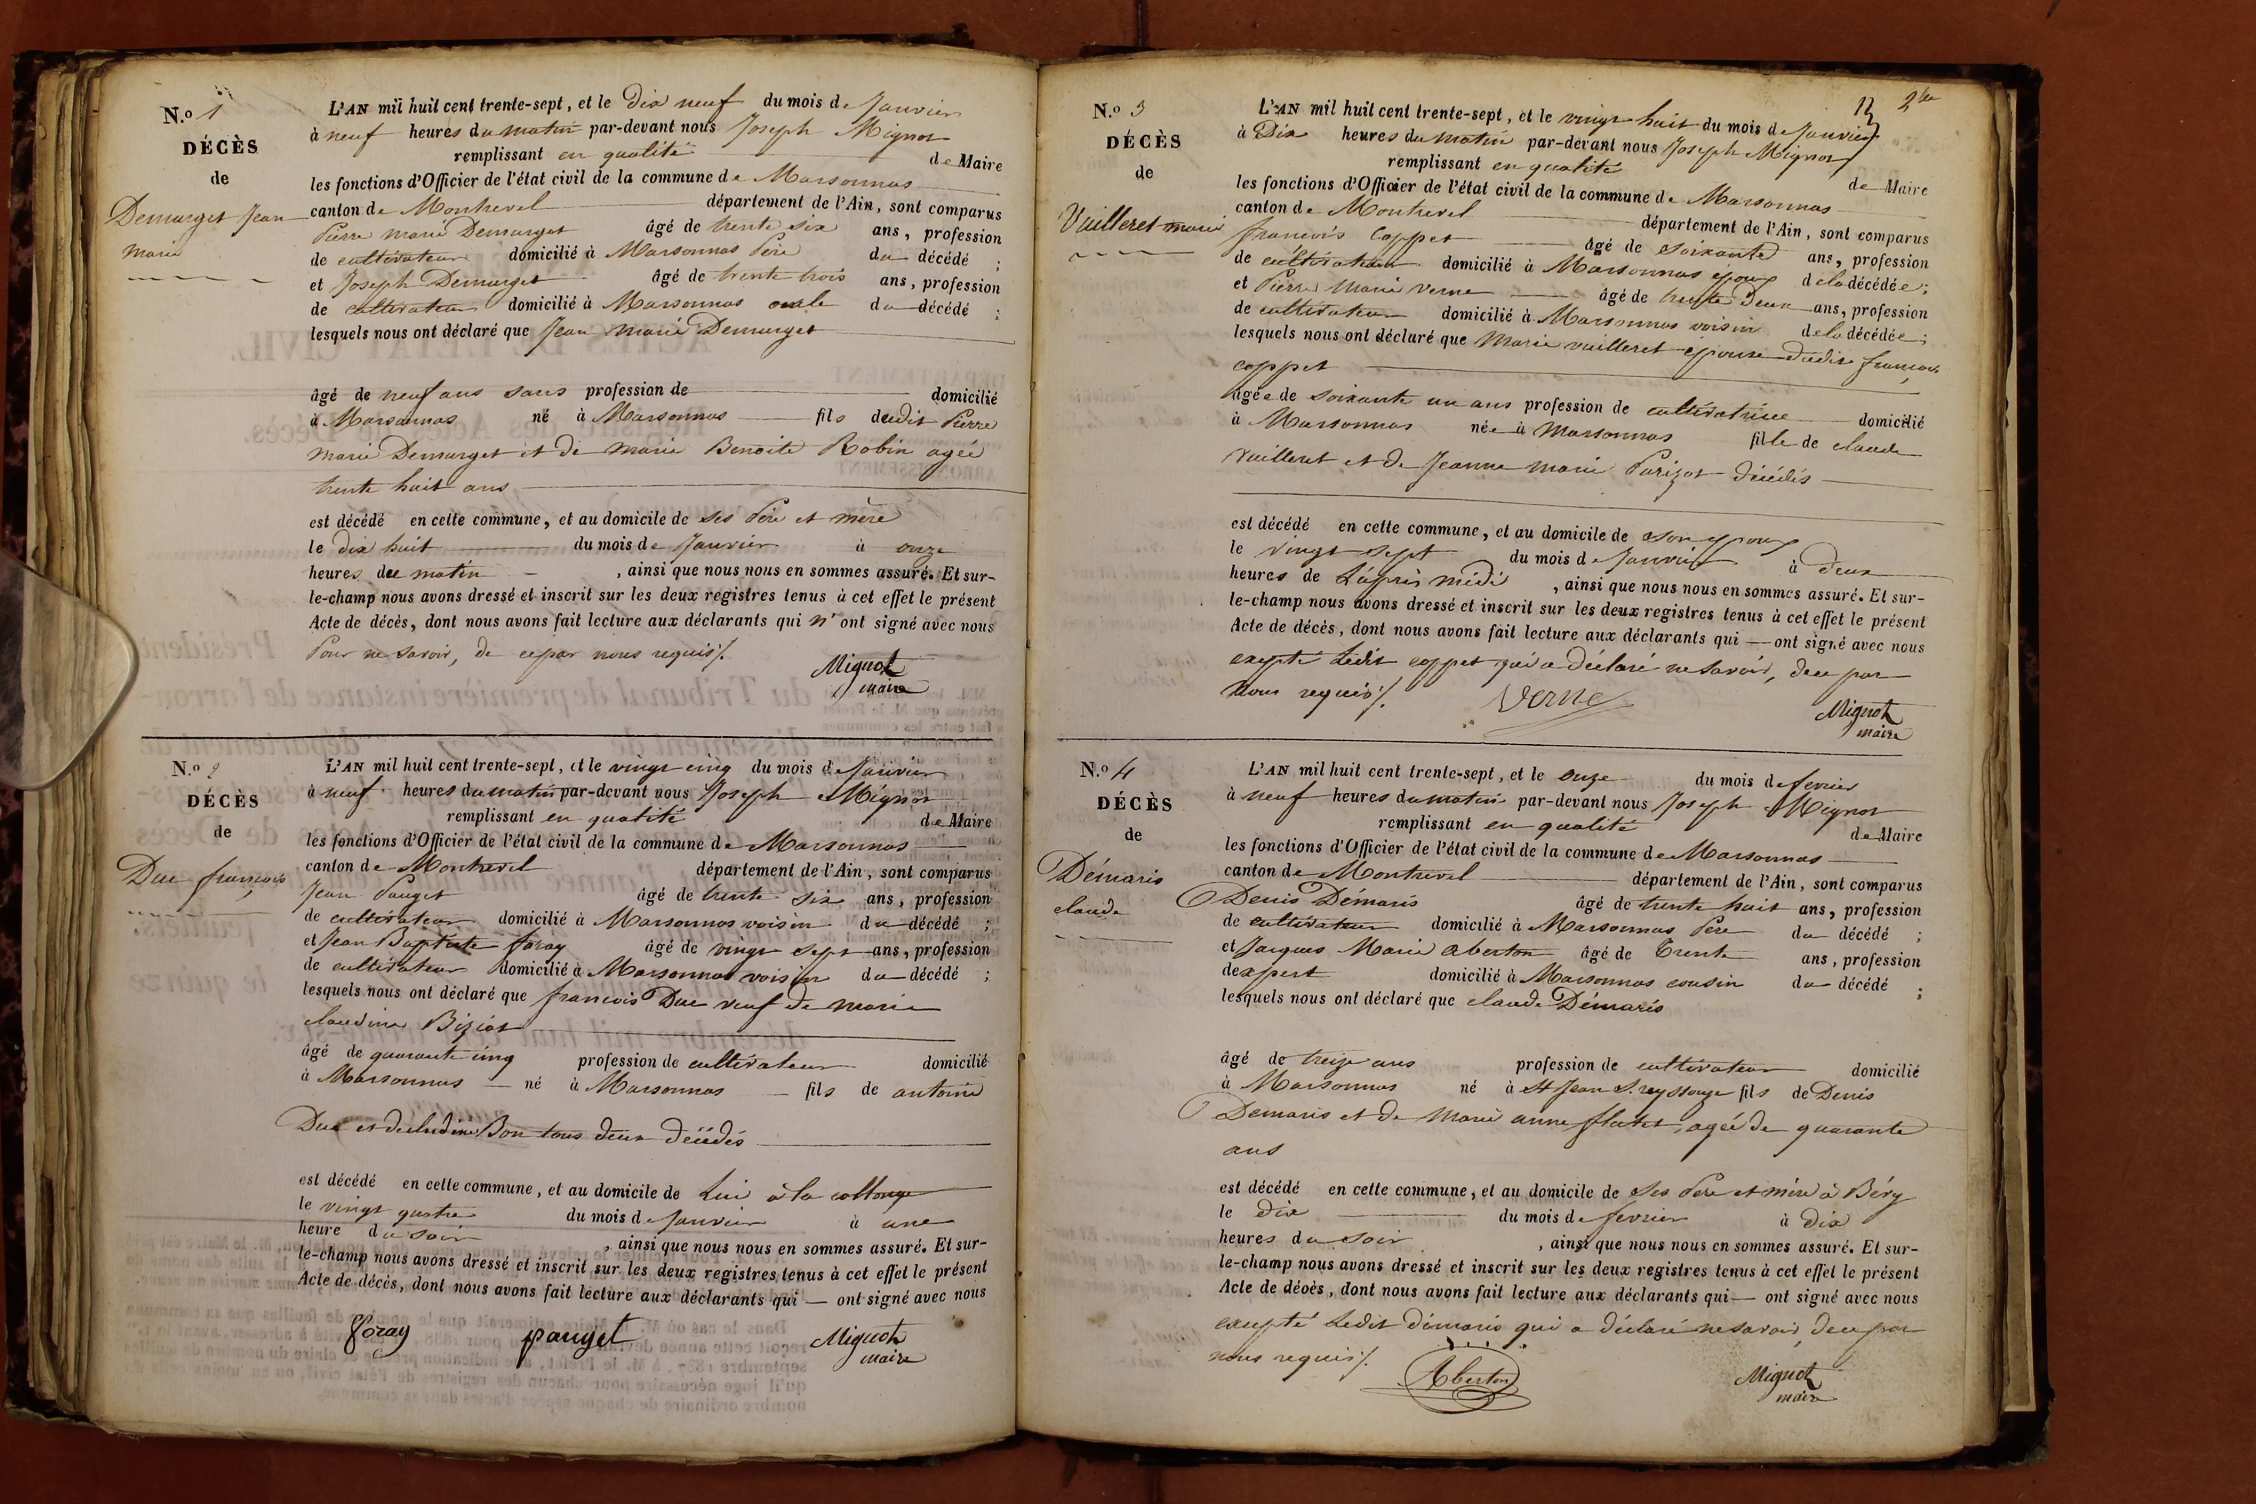 N.º 1
DÉCÈS
de
Demurget Jean
marie
L'AN mil huit cent trente-sept, et le dix neuf du mois de Janvier
à neuf heures du matin par-devant nous Joseph Mignot
remplissant en qualité de Maire
les fonctions d'Officier de l'état civil de la commune de Marsonnas
canton de Montrevel département de l'Ain, sont comparus
Pierre marie Demurget âgé de trente six ans, profession
de cultivateur domicilié à Marsonnas Père du décédé ;
et Joseph Demurget âgé de trente trois ans, profession
de cultivateur domicilié à Marsonnas oncle du décédé ;
lesquels nous ont déclaré que Jean marie Demurget
âgé de neuf ans sans profession de domicilié
à Marsonnas né à Marsonnas fils dudit Pierre
marie Demurget et de marie Benoite Robin agée
trente huit ans
est décédé en cette commune, et au domicile de ses Père et mère
le dix huit du mois de Janvier à onze
heures du matin , ainsi que nous nous en sommes assuré. Et sur-
le-champ nous avons dressé et inscrit sur les deux registres tenus à cet effet le présent
Acte de décès, dont nous avons fait lecture aux déclarants qui n' ont signé avec nous
Pour ne savoir, de ce par nous requis /.
Mignot
maire
N.º 2
DÉCÈS
de
Duc françois
L'AN mil huit cent trente-sept, et le vingt cinq du mois de Janvier
à neuf heures du matin par-devant nous Joseph Mignot
remplissant en qualité de Maire
les fonctions d'Officier de l'état civil de la commune de Marsonnas
canton de Montrevel département de l'Ain, sont comparus
Jean Pauget âgé de trente six ans, profession
de cultivateur domicilié à Marsonnas voisin du décédé ;
et Jean Baptiste foray âgé de vingt sept ans, profession
de cultivateur domicilié à Marsonnas voisin du décédé ;
lesquels nous ont déclaré que francois Duc veuf de marie
claudine Biziat
âgé de quarante cinq profession de cultivateur domicilié
à Marsonnas né à Marsonnas fils de antoine
Duc et de Bon tous deux décédés
est décédé en cette commune, et au domicile de Lui à la collonge
le vingt quatre du mois de Janvier à une
heure du soir , ainsi que nous nous en sommes assuré. Et sur-
le-champ nous avons dressé et inscrit sur les deux registres tenus à cet effet le présent
Acte de décès, dont nous avons fait lecture aux déclarants qui — ont signé avec nous
foray pauget Mignot
maire
2
N.º 3
DÉCÈS
de
Vuilleret marie
L'AN mil huit cent trente-sept, et le vingt huit du mois de Janvier
à Dix heures du matin par-devant nous Joseph Mignot
remplissant en qualité de Maire
les fonctions d'Officier de l'état civil de la commune de Marsonnas
canton de Montrevel département de l'Ain, sont comparus
francois Coppet âgé de soixante ans, profession
de cultivateur domicilié à Marsonnas époux de la décédée ;
et Pierre Marie verne âgé de trente deux ans, profession
de cultivateur domicilié à Marsonnas voisin de la décédée ;
lesquels nous ont déclaré que Marie vuilleret épouse dudit francois
coppet
âgée de soixante un ans profession de cultivatrice domicilié
à Marsonnas née à Marsonnas fille de claude
vuilleret et de Jeanne marie Parizot décédés
est décédé en cette commune, et au domicile de son epoux
le vingt sept du mois de Janvier à deux
heures de L'après midi , ainsi que nous nous en sommes assuré. Et sur-
le-champ nous avons dressé et inscrit sur les deux registres tenus à cet effet le présent
Acte de décés, dont nous avons fait lecture aux déclarants qui — ont signé avec nous
excepté Ledit coppet qui a déclaré ne savoir, de ce par
nous requis /.
Verne
Mignot
maire
N.º 4
DÉCÈS
de
Démaris
claude
L'AN mil huit cent trente-sept, et le onze du mois de fevrier
à neuf heures du matin par-devant nous Joseph Mignot
remplissant en qualité de Maire
les fonctions d'Officier de l'état civil de la commune de Marsonnas
canton de Montrevel département de l'Ain, sont comparus
Denis Démaris âgé de trente huit ans, profession
de cultivateur domicilié à Marsonnas Père du décédé ;
et Jacques Marie aberton âgé de Trente ans, profession
d'expert domicilié à Marsonnas cousin du décédé ;
lesquels nous ont déclaré que claude Démaris
âgé de treize ans profession de cultivateur domicilié
à Marsonnas né à St Jean S. reyssouze fils de Denis
Demaris et de Marie anne flutet, agée de quarante
ans
est décédé en cette commune, et au domicile de ses Père et mère à Béry
le dix du mois de fevrier à dix
heures du soir , ainsi que nous nous en sommes assuré. Et sur-
le-champ nous avons dressé et inscrit sur les deux registres tenus à cet effet le présent
Acte de décès, dont nous avons fait lecture aux déclarants qui — ont signé avec nous
excepté Ledit démaris qui a déclaré ne savoir, de ce par
nous requis /.
Aberton
Mignot
maire